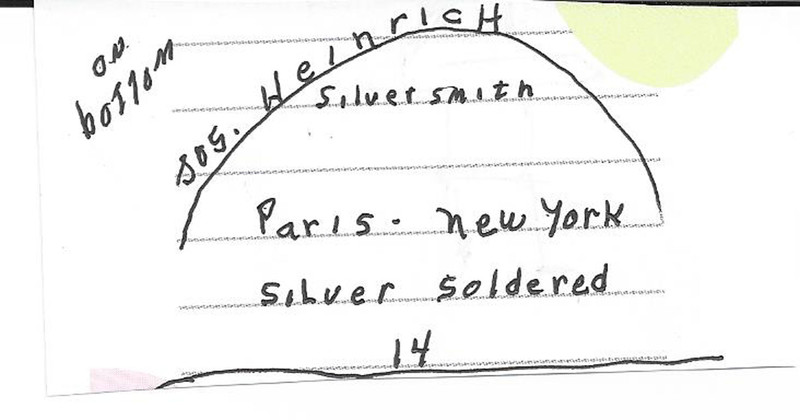 on
bottom
Jos. HeinricH
Silversmith
Paris. new York
Silver Soldered
14